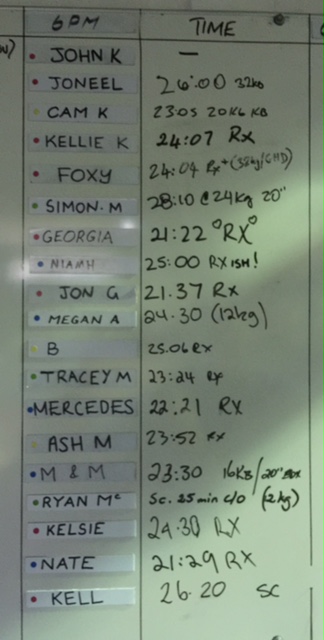 6PM TIME
W)
JOHN K —
JONEEL 26:00 32kg
CAM K 23:05 20KG KB
KELLIE K 24:07 Rx
FOXY 24:04 Rx+ (38kg/GHD)
SIMON. M 28:10 @ 24kg 20"
GEORGIA 21:22 °RX°
NIAMH 25:00 RXISH!
JON G 21.37 RX
MEGAN A 24.30 (12kg)
B 25.06 RX
TRACEY M 23:24 Rx
MERCEDES 22:21 RX
ASH M 23:52 RX
M & M 23:30 16KB/20" BOX
RYAN Mc Sc. 25 min c/o (12kg)
KELSIE 24.30 RX
NATE 21:29 RX
KELL 26.20 SC